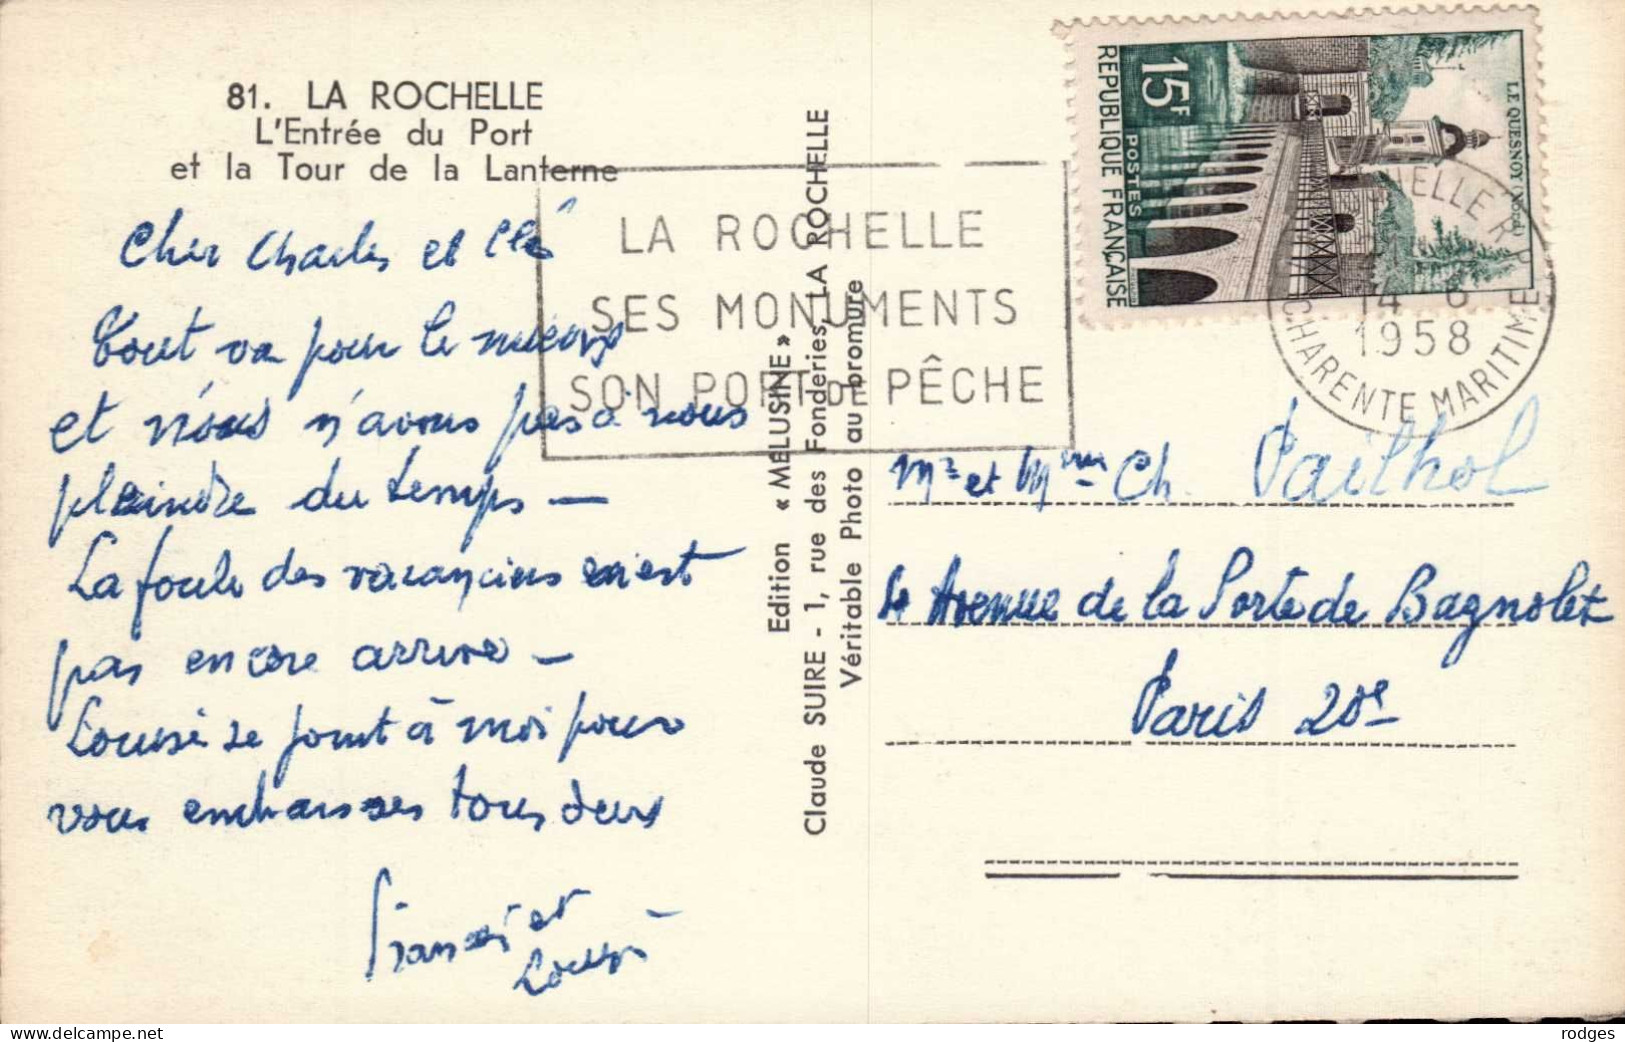 81. LA ROCHELLE
L'Entrée du Port
et la Tour de la Lanterne
Cher Charles et Clé
Tout va pour le mieux
et nous n'avons pas à nous
plaindre du temps —
La foule des vacanciers n'est
pas encore arrivée —
Louise se joint à moi pour
vous embrasser tous deux
Francis et
Louise
LA ROCHELLE
SES MONUMENTS
SON PORT DE PÊCHE
Edition « MÉLUSINE »
Claude SUIRE - 1, rue des Fonderies, LA ROCHELLE
Véritable Photo au bromure
15F
POSTES
REPUBLIQUE FRANÇAISE
LE QUESNOY (Nord)
HELLE R.P.
14 - 6
1958
CHARENTE MARITIME
Mr et Mme Ch. Pailhol
Avenue de la Porte de Bagnolet
Paris 20e
rodges